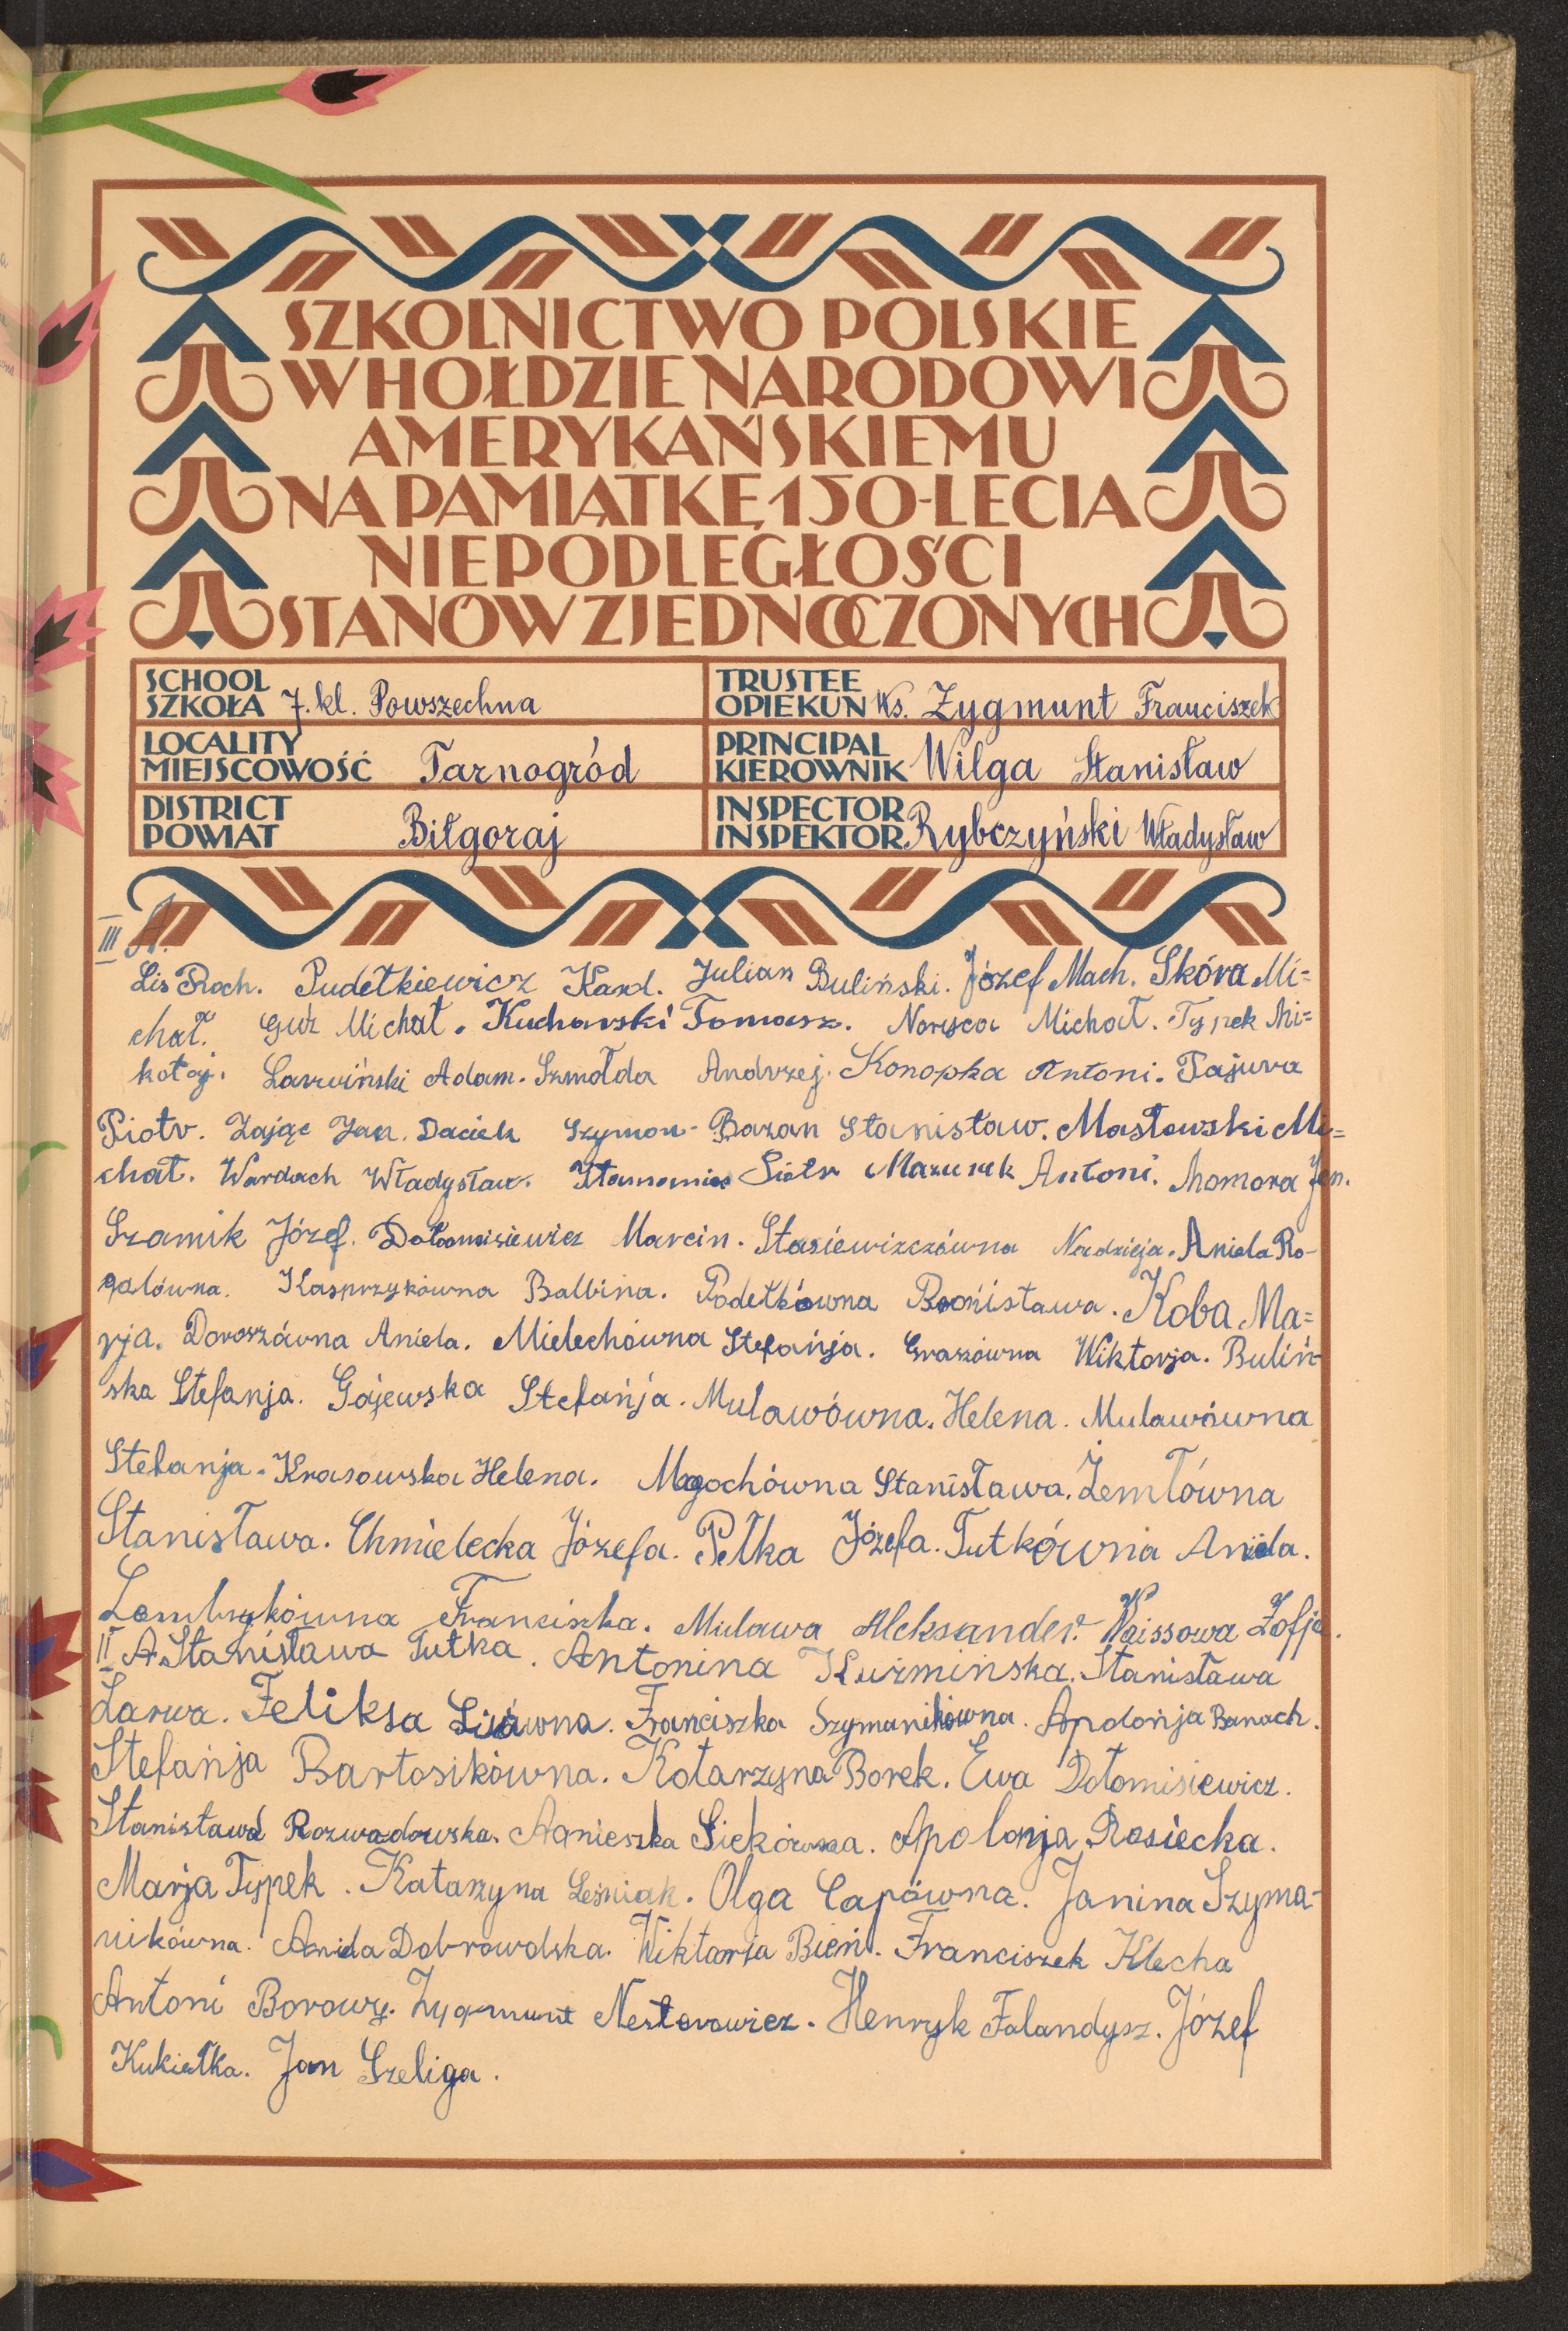 SZKOLNICTWO POLSKIE
W HOŁDZIE NARODOWI
AMERYKAŃSKIEMU
NA PAMIĄTKĘ 150-LECIA
NIEPODLEGŁOŚCI
STANÓW ZJEDNOCZONYCH
SCHOOL
SZKOŁA 7. kl. Powszechna
TRUSTEE
OPIEKUN Ks. Zygmunt Franciszek
LOCALITY
MIEJSCOWOŚĆ Tarnogród
PRINCIPAL
KIEROWNIK Wilga Stanisław
DISTRICT
POWIAT Biłgoraj
INSPECTOR
INSPEKTOR Rybczyński Władysław
III A.
Lis Roch. Pudełkiewicz Karol. Julian Buliński. Józef Mach. Skóra Mi=
chał. Guz Michał. Kucharski Tomasz. Michał. Typek Mi=
kołaj. Adam. Szmołda Andrzej. Konopka Antoni. Tajura
Piotr. Zając Jan. Daciek Szymon. Bazan Stanisław. Masłowski Mi=
chał. Wardach Władysław. Piotr Mazurek Antoni. Momora Jan.
Szamik Józef. Dołomisiewicz Marcin. Nadzieja. Aniela Ro-
galówna. Kasprzykówna Balbina. Podełkówna Bronisława. Koba Ma=
rja. Doroszówna Aniela. Mielechówna Stefańja. Graszówna Wiktorja. Buliń-
ska Stefanja. Gajewska Stefańja. Mulawówna. Helena. Mulawówna
Stefanja. Krasowska Helena. Magochówna Stanisława. Żemłówna
Stanisława. Chmielecka Józefa. Pełka Józefa. Tutkówna Aniela.
Franciszka. Mulawa Aleksander. Waissowa Zofja.
II A Stanisława Tutka. Antonina Kuźmińska. Stanisława
Larwa. Feliksa Lisówna. Franciszka Szymanikówna. Apolońja Banach.
Stefańja Bartosikówna. Katarzyna Borek. Ewa Dołomisiewicz.
Stanisława Rozwadowska. Agnieszka Siekówna. Apolonja Rosiecka.
Marja Typek. Katarzyna Leśniak. Olga Capówna. Janina Szyma-
nikówna. Aniela Dobrowolska. Wiktorja Bień. Franciszek Klecha
Antoni Borowy. Zygmunt Nestorowicz. Henryk Falandysz. Józef
Kukiełka. Jan Szeliga.